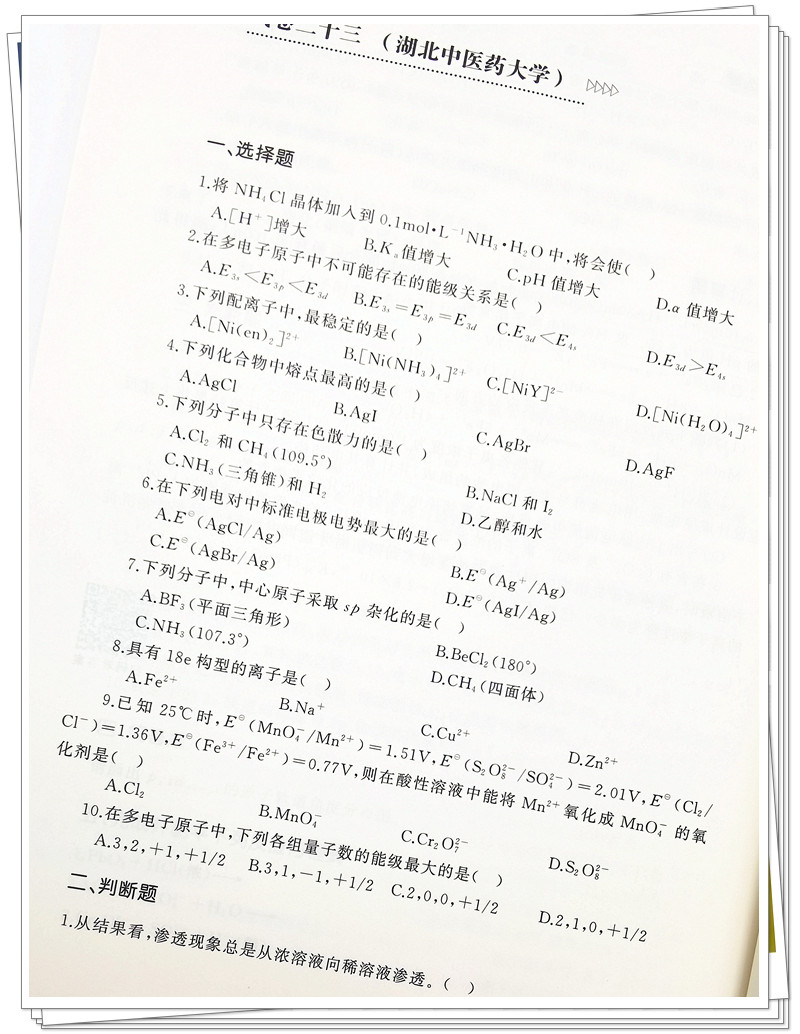 卷二十三 (湖北中医药大学)
一、选择题
1.将 NH₄Cl 晶体加入到 0.1mol·L⁻¹NH₃·H₂O 中,将会使( )
A.[H⁺]增大 B.Kₐ值增大 C.pH 值增大 D.α 值增大
2.在多电子原子中不可能存在的能级关系是( )
A.E₃ₛ<E₃ₚ<E₃d B.E₃ₛ=E₃ₚ=E₃d C.E₃d<E₄ₛ D.E₃d>E₄ₛ
3.下列配离子中,最稳定的是( )
A.[Ni(en)₂]²⁺ B.[Ni(NH₃)₄]²⁺ C.[NiY]²⁻ D.[Ni(H₂O)₄]²⁺
4.下列化合物中熔点最高的是( )
A.AgCl B.AgI C.AgBr D.AgF
5.下列分子中只存在色散力的是( )
A.Cl₂ 和 CH₄(109.5°) B.NaCl 和 I₂
C.NH₃(三角锥)和 H₂ D.乙醇和水
6.在下列电对中标准电极电势最大的是( )
A.E⊖(AgCl/Ag) B.E⊖(Ag⁺/Ag)
C.E⊖(AgBr/Ag) D.E⊖(AgI/Ag)
7.下列分子中,中心原子采取 sp 杂化的是( )
A.BF₃(平面三角形) B.BeCl₂(180°)
C.NH₃(107.3°) D.CH₄(四面体)
8.具有 18e 构型的离子是( )
A.Fe²⁺ B.Na⁺ C.Cu²⁺ D.Zn²⁺
9.已知 25℃时,E⊖(MnO₄⁻/Mn²⁺)=1.51V,E⊖(S₂O₈²⁻/SO₄²⁻)=2.01V,E⊖(Cl₂/
Cl⁻)=1.36V,E⊖(Fe³⁺/Fe²⁺)=0.77V,则在酸性溶液中能将 Mn²⁺氧化成 MnO₄⁻ 的氧
化剂是( )
A.Cl₂ B.MnO₄⁻ C.Cr₂O₇²⁻ D.S₂O₈²⁻
10.在多电子原子中,下列各组量子数的能级最大的是( )
A.3,2,+1,+1/2 B.3,1,-1,+1/2 C.2,0,0,+1/2 D.2,1,0,+1/2
二、判断题
1.从结果看,渗透现象总是从浓溶液向稀溶液渗透。( )